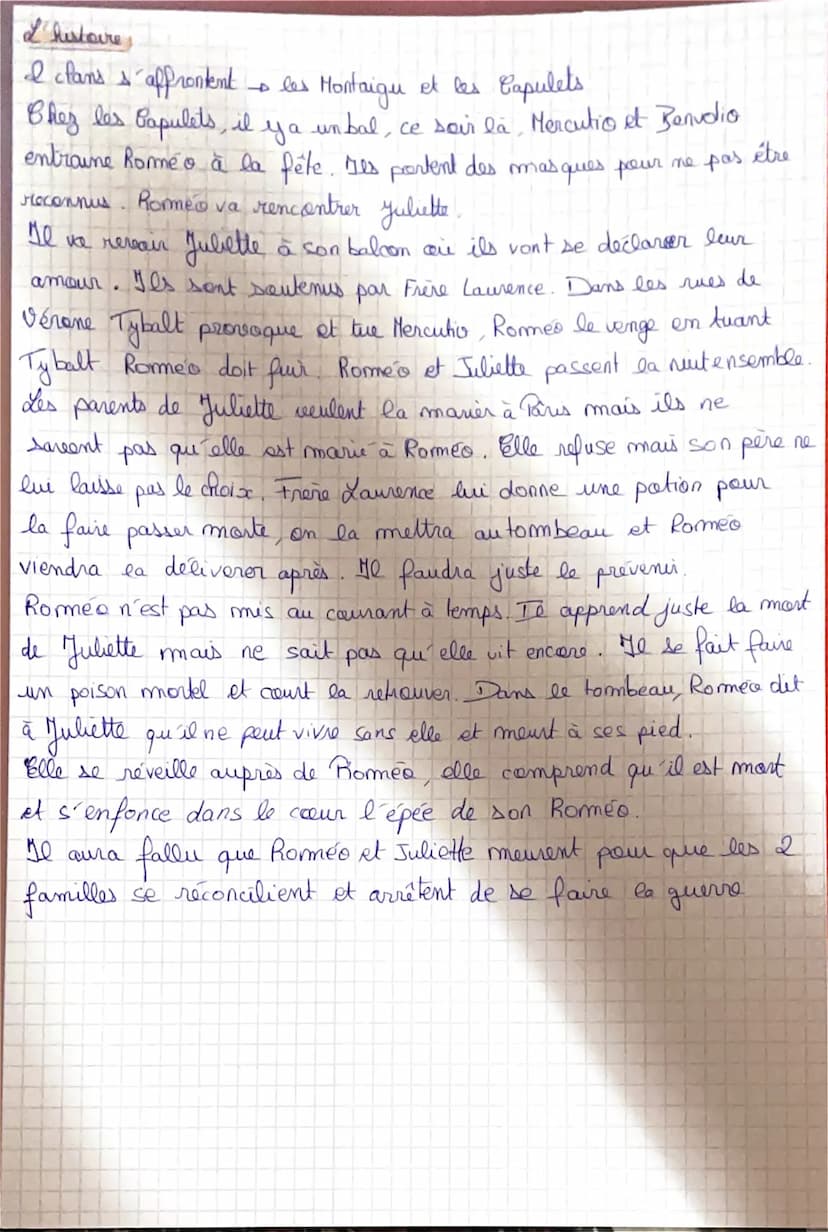 L'histoire
2 clans s'affrontent → les Montaigu et les Capulets
Chez les Capulets, il y a un bal, ce soir là, Mercutio et Benvolio
entraine Roméo à la fête. Ils portent des masques pour ne pas être
reconnus. Roméo va rencontrer Juliette.
Il va revoir Juliette à son balcon où ils vont se déclarer leur
amour. Ils sont soutenus par Frère Laurence. Dans les rues de
Vérone Tybalt provoque et tue Mercutio, Roméo le venge en tuant
Tybalt. Roméo doit fuir. Roméo et Juliette passent la nuit ensemble.
Les parents de Juliette veulent la marier à Pâris mais ils ne
savent pas qu'elle est marié à Roméo. Elle refuse mais son père ne
lui laisse pas le choix. Frère Laurence lui donne une potion pour
la faire passer morte, on la mettra au tombeau et Roméo
viendra la délivrer après. Il faudra juste le prévenir.
Roméo n'est pas mis au courant à temps. Il apprend juste la mort
de Juliette mais ne sait pas qu'elle vit encore. Il se fait faire
un poison mortel et court la retrouver. Dans le tombeau, Roméo dit
à Juliette qu'il ne peut vivre sans elle et meurt à ses pied.
Elle se réveille auprès de Roméo, elle comprend qu'il est mort
et s'enfonce dans le cœur l'épée de son Roméo.
Il aura fallu que Roméo et Juliette meurent pour que les 2
familles se réconcilient et arrêtent de se faire la guerre